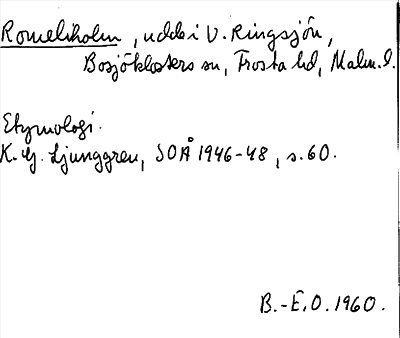 Romeliholm, udde i V. Ringsjön,
Bosjöklosters sn, Frosta hd, Malm. l.
Etymologi.
K. G. Ljunggren, SOÅ 1946-48, s. 60.
B.-E. O. 1960.